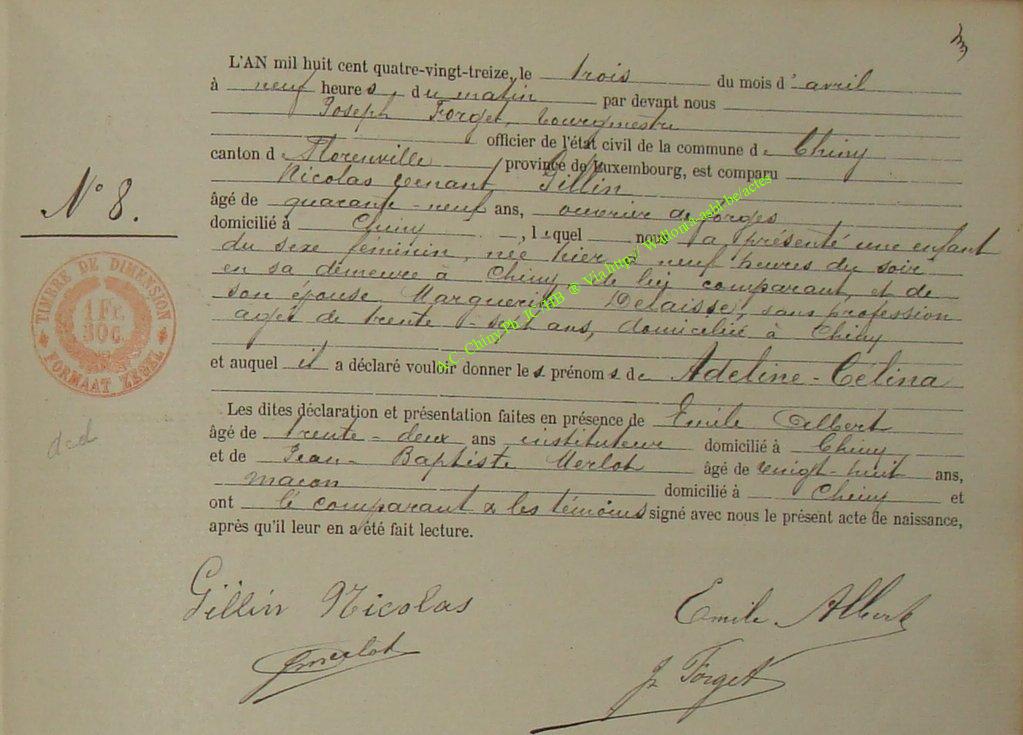 L'AN mil huit cent quatre-vingt-treize, le trois du mois d'avril
à neuf heures du matin par devant nous
Joseph Forget, bourgmestre
officier de l'état civil de la commune de Chiny
canton de Florenville province de Luxembourg, est comparu
Nicolas venant Gillin
âgé de quarante-neuf ans, ouvrier de forges
domicilié à Chiny, lequel nous a présenté une enfant
du sexe féminin, née hier à neuf heures du soir
en sa demeure à Chiny de lui comparant, et de
son épouse Marguerite Delaisse, sans profession
agée de trente-sept ans, domiciliée à Chiny
et auquel il a déclaré vouloir donner les prénoms de Adeline-Célina
Les dites déclaration et présentation faites en présence de Emile Albert
âgé de trente-deux ans instituteur domicilié à Chiny
et de Jean-Baptiste Merlot âgé de vingt-huit ans,
maçon domicilié à Chiny et
ont le comparant & les témoins signé avec nous le présent acte de naissance,
après qu'il leur en a été fait lecture.
N° 8.
TIMBRE DE DIMENSION
1 Fr.
30 C.
FORMAAT ZEGEL
dcd
A.C. Chiny Ph. JC HB ® Via http/ Wallonia-asbl-be/actes
Gillin Nicolas
Emile Albert
J. Forget